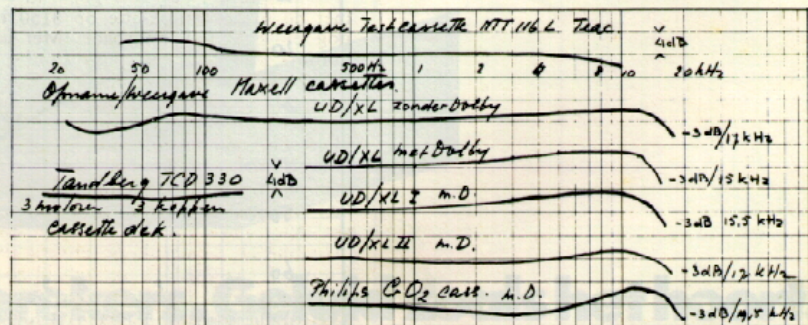 weergave Testcassette MTT 116 L Teac.
4dB
20 50 100 500Hz 1 2 4 8 10 20kHz
Opname/weergave Maxell cassettes.
UD/XL zonder Dolby
-3dB/17kHz
UD/XL met Dolby
-3dB/15 kHz
Tandberg TCD 330
4dB
3 motoren 3 koppen
cassette dek.
UD/XL I m.D.
-3dB 15,5 kHz
UD/XL II m.D.
-3dB/17 kHz
Philips CrO2 cass. m.D.
-3dB/19,5 kHz